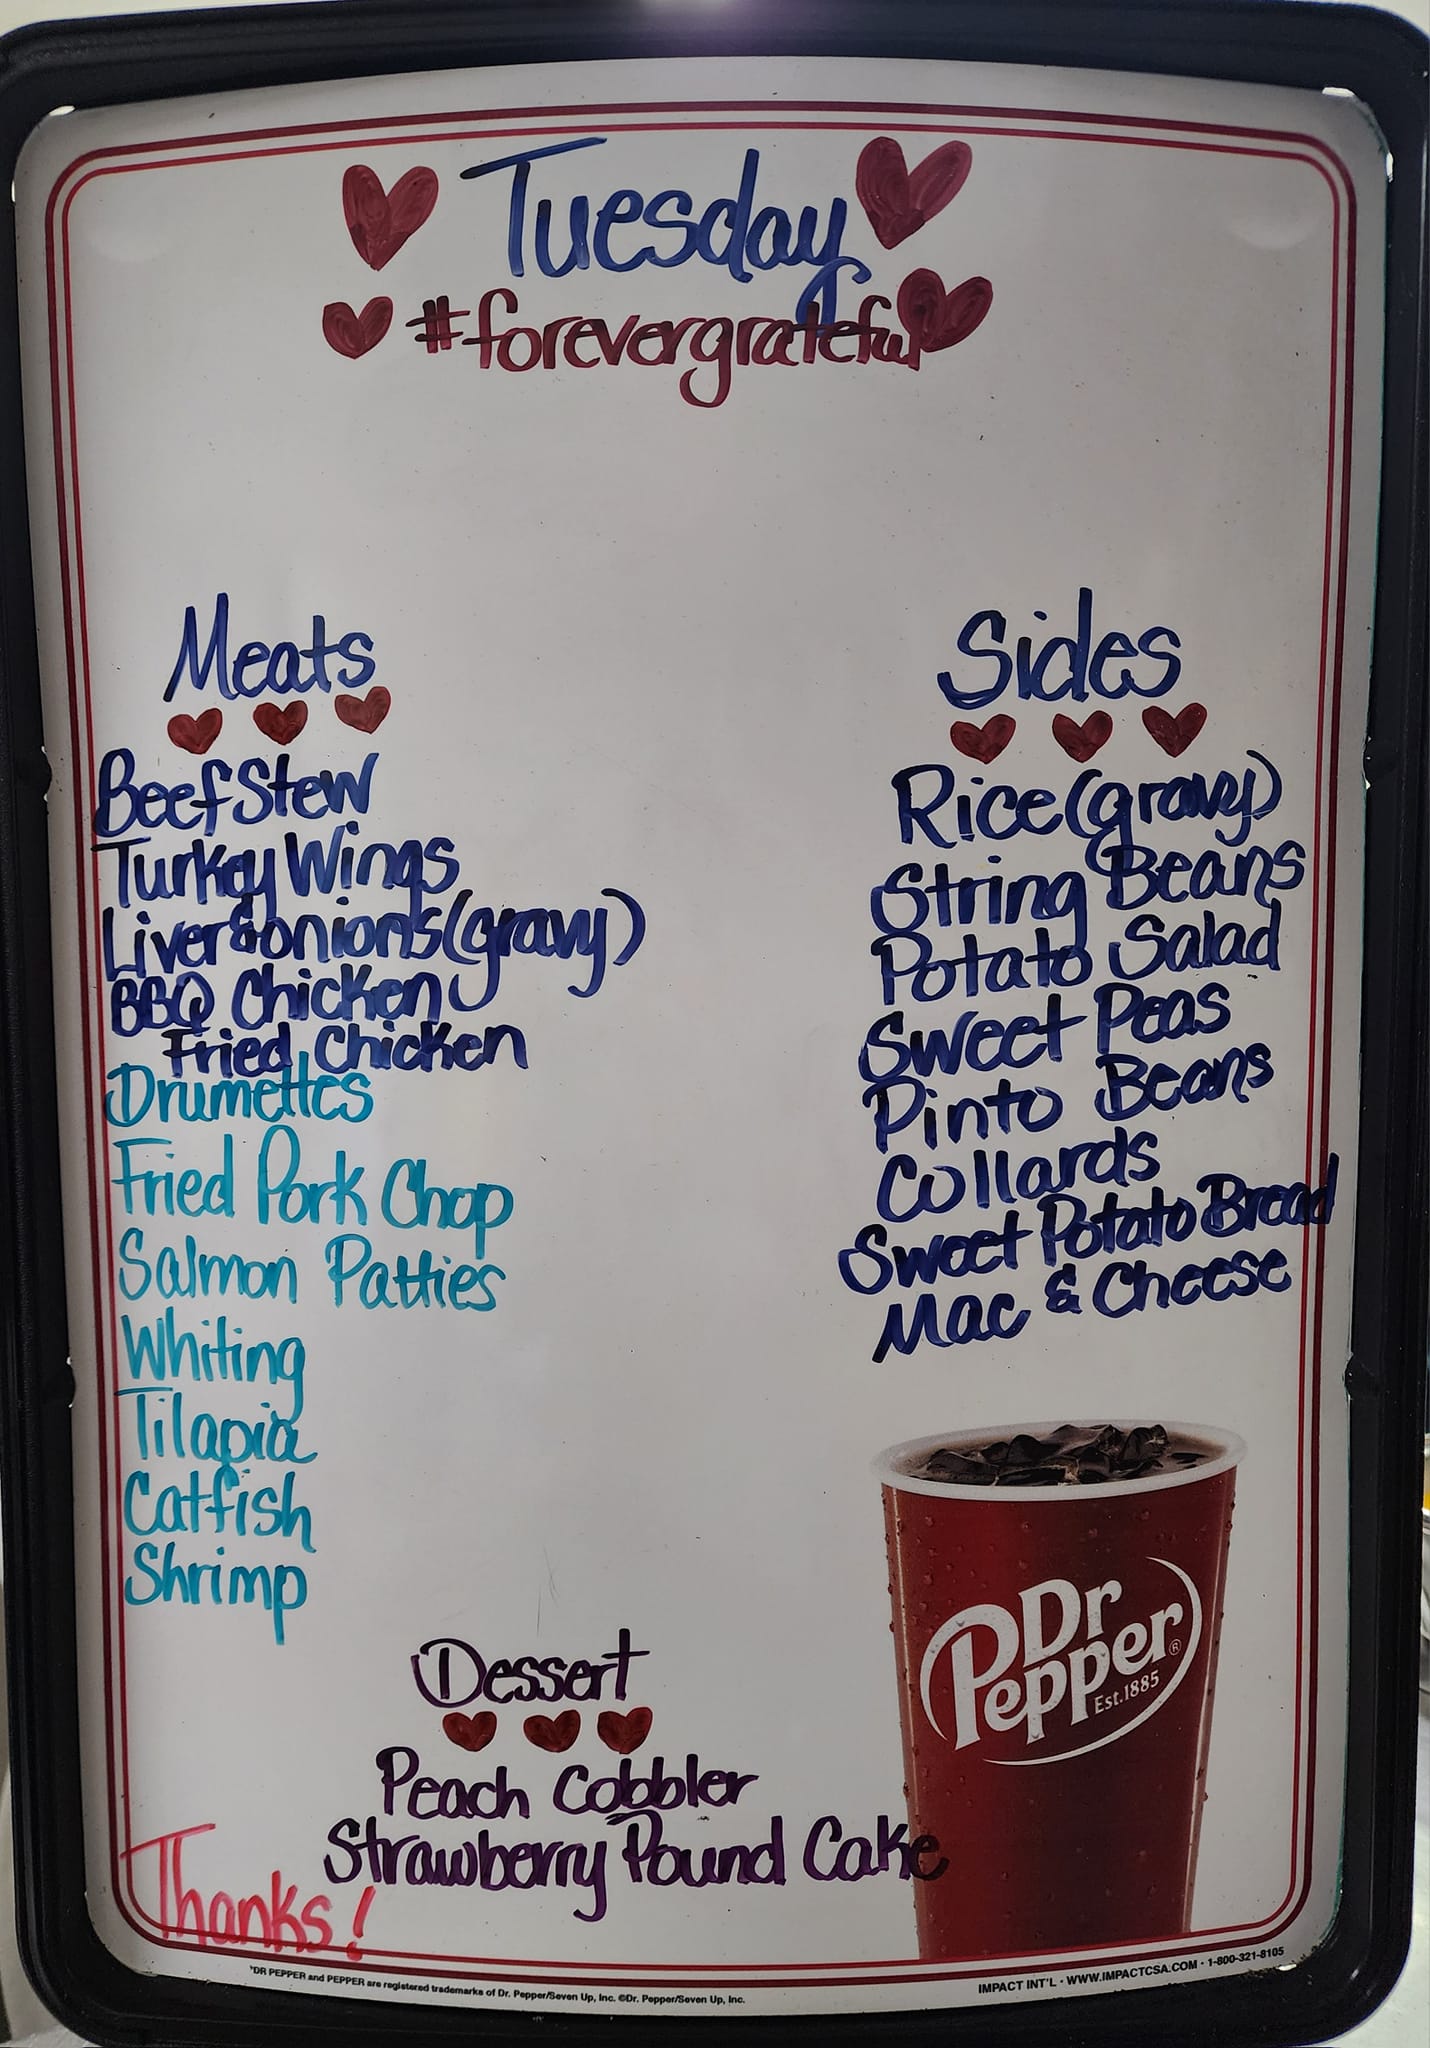 Tuesday
#forevergrateful
Meats
Beef Stew
Turkey Wings
Liver & onions (gravy)
BBQ Chicken
Fried Chicken
Drumettes
Fried Pork Chop
Salmon Patties
Whiting
Tilapia
Catfish
Shrimp
Sides
Rice (gravy)
String Beans
Potato Salad
Sweet Peas
Pinto Beans
Collards
Sweet Potato Bread
Mac & Cheese
Dr
Pepper®
Est.1885
Dessert
Peach Cobbler
Strawberry Pound Cake
Thanks!
*DR PEPPER and PEPPER are registered trademarks of Dr. Pepper/Seven Up, Inc. ©Dr. Pepper/Seven Up, Inc.
IMPACT INT'L · WWW.IMPACTCSA.COM · 1-800-321-8105